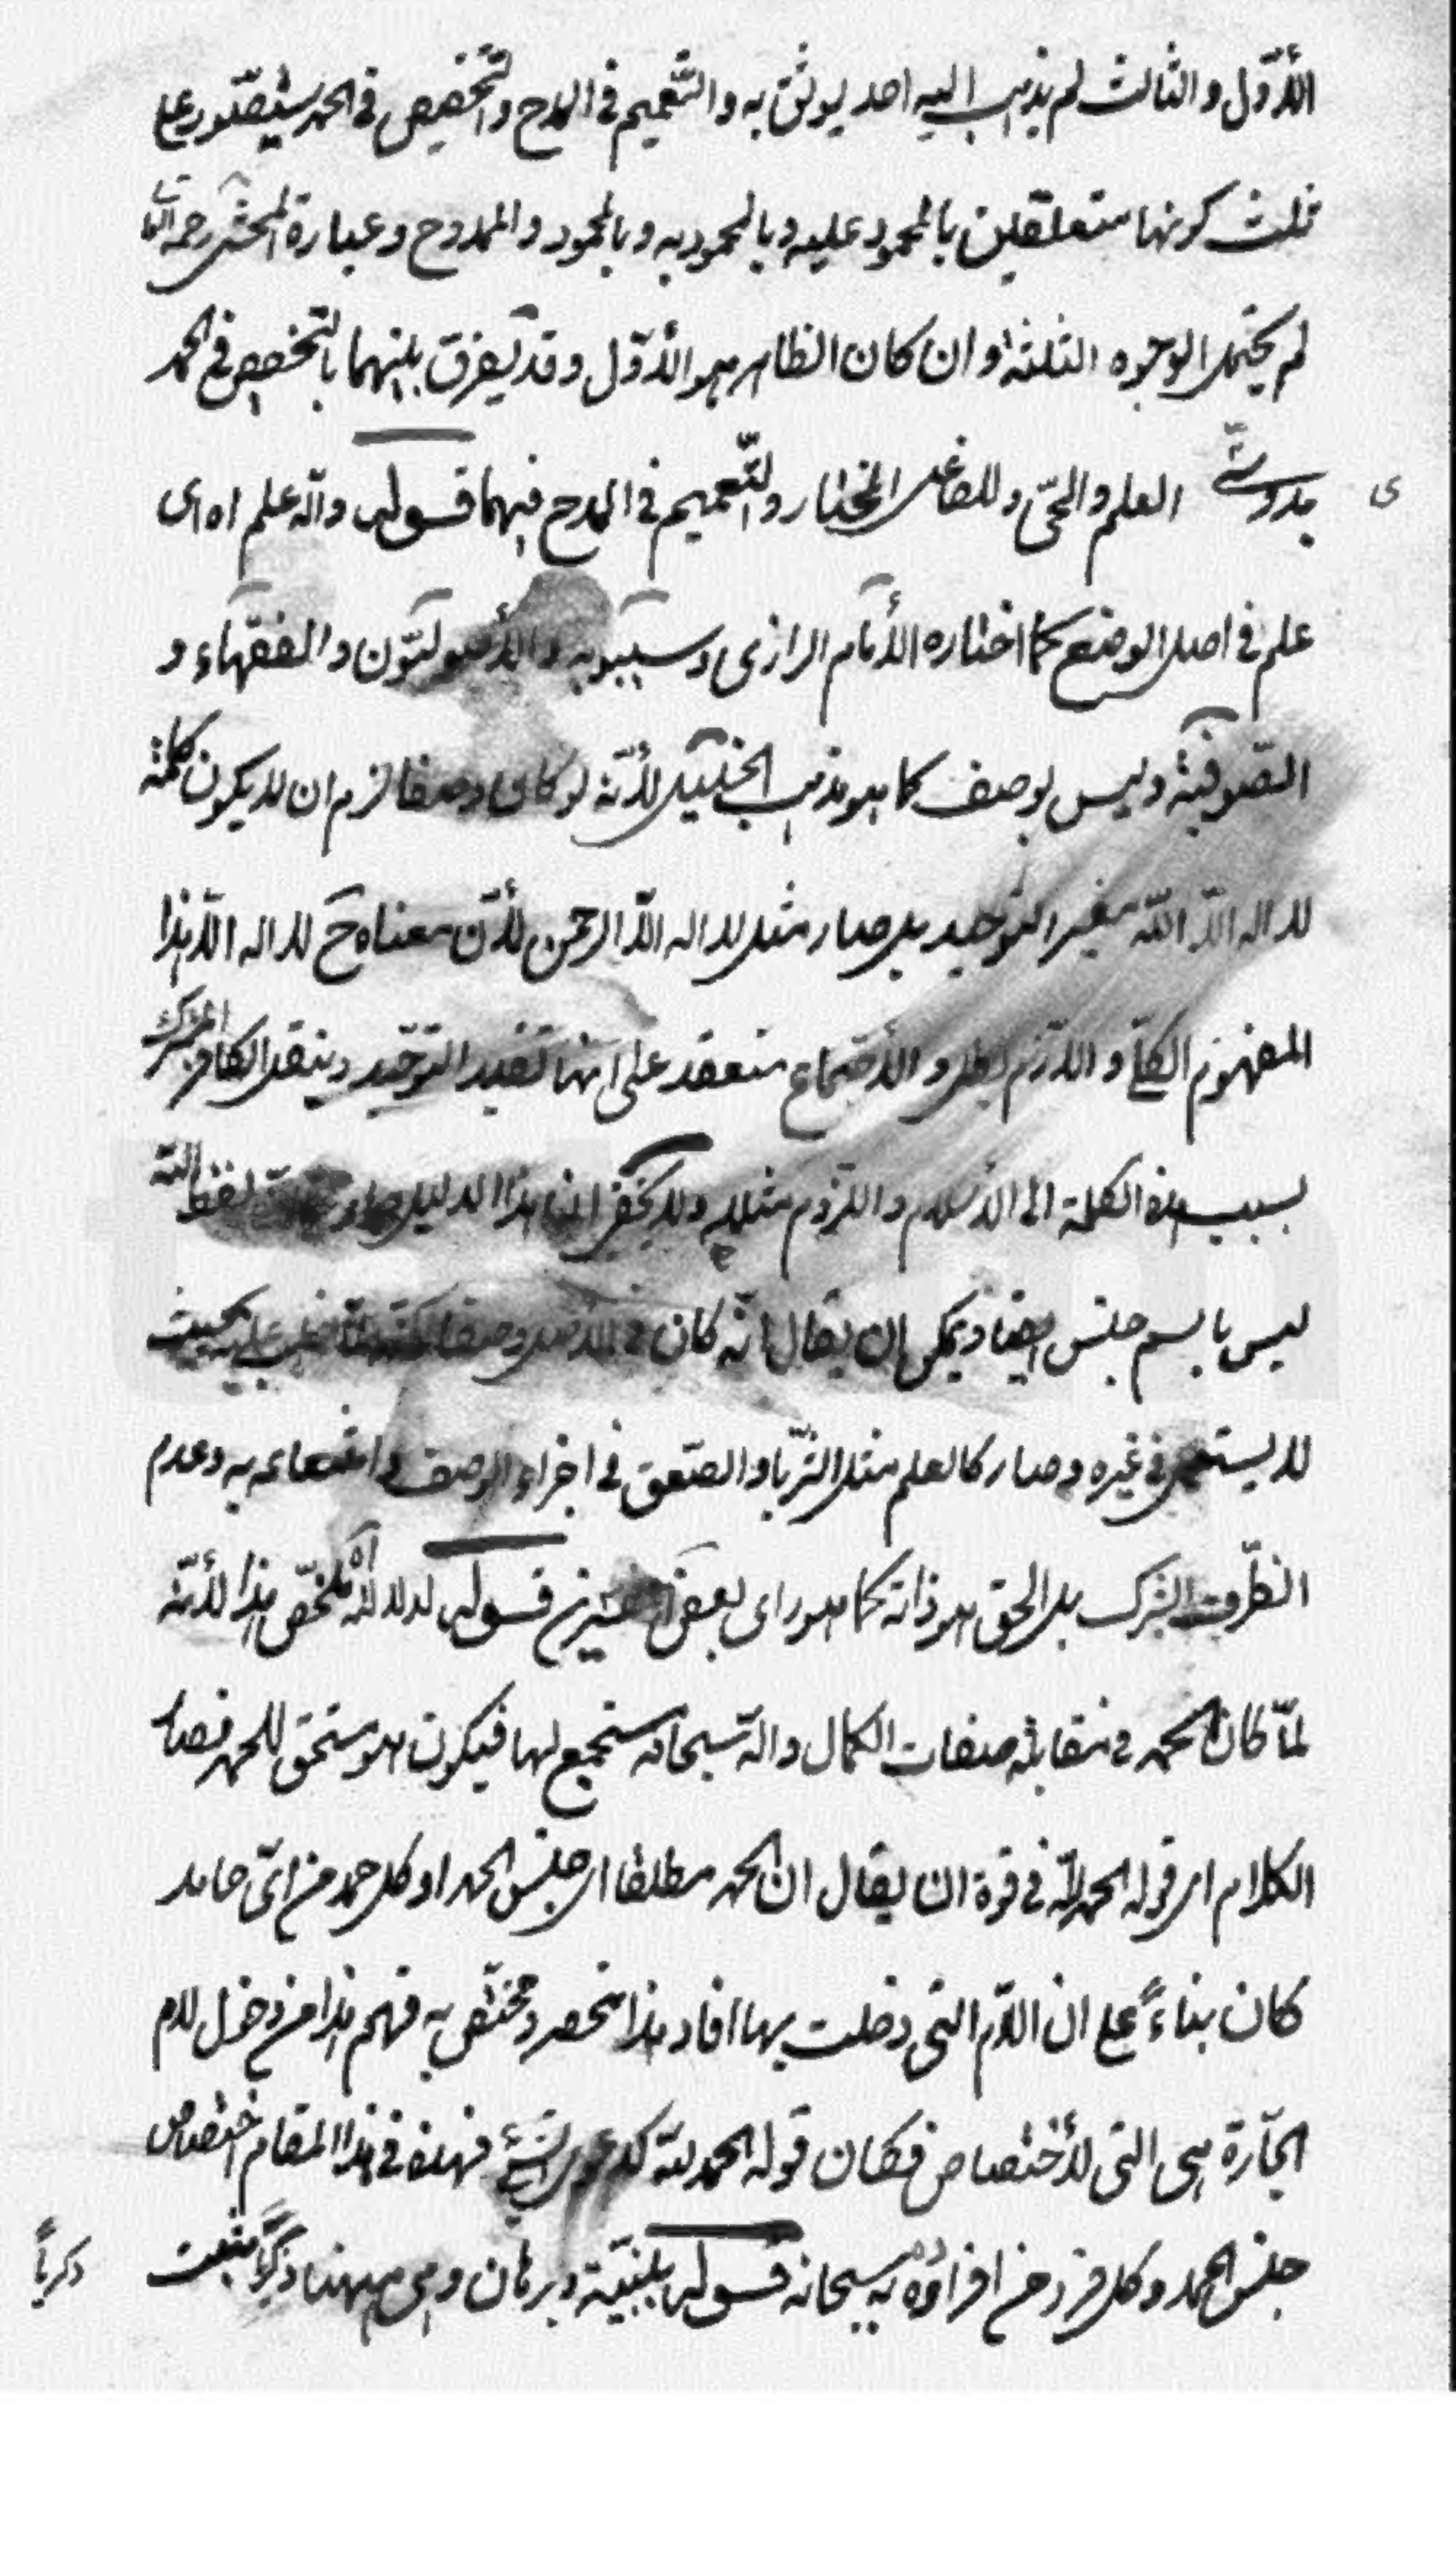 الأوّل والثالث لم يذهب اليه احد يوثق به والتّعميم فى المدح والتّخصيص فى الحمد يتصوّر على
ثلث كونهما متعلّقين بالمحمود عليه وبالمحمود به وبالمحمود والممدوح وعبارة المحشى رحمه الله
لم يحتمل الوجوه الثلثة وان كان الظاهر هو الأوّل وقد يفرق بينهما بالتخصيص فى الحمد
العلم والحىّ وللفاعل المختار والتّعميم فى المدح فيهما قوله والله علم اه اى
ى
علم فى اصل الوضع كما اختاره الأمام الرازى وسيبويه والأصوليّون والفقهاء و
الصّوفيّة وليس بوصف كما هو مذهب الخليل لأنّه لو كان وصفا لزم ان لا يكون كلمة
لا اله الّا اللّه مفيد التوحيد بل صار مثل لا اله الّا الرحمن لأنّ معناه ح لا اله الّا هذا
المفهوم الكلّى و اللازم بطل و الأجماع منعقد على انها تفيد التوحيد وينقل الكافر المشرك
بسبب هذه الكلمة الى الأسلام و الملزوم مثله ولا يخفى ان هذا الدليل لفظ اللّه
ليس باسم جنس ايضا ويمكن ان يقال انّه كان فى الأصل وصفا لكنّه لمّا غلب عليه بحيث
لا يستعمل فى غيره وصار كالعلم مثل الثريّا والصّعق فى اجراء الوصف وامتناعه به وعدم
التطرّق الشرك بل الحق هو ذاته كما هو راى بعض المفسّرين قوله لدلالة اه ملخّص هذا لأنّه
لمّا كان الحمد فى مقابلة صفات الكمال واللّه سبحانه مستجمع لها فيكون هو مستحق للحمد فصار
الكلام اى قوله الحمد للّه فى قوة ان يقال ان الحمد مطلقا اى جنس الحمد او كل حمد من اىّ حامد
كان بناءً على ان اللّام التى دخلت بها افاد هذا منحصر ومختصّ به فهم هذا من دخول لام
الجارّة هى التى لأختصاص فكان قوله الحمد للّه كدعوى الشئ فهذه فى هذا المقام اختصاص
جنس الحمد وكل فرد من افراده به سبحانه قوله ببيّنة وبرهان وهى ههنا ذكريّا
ذكرياً